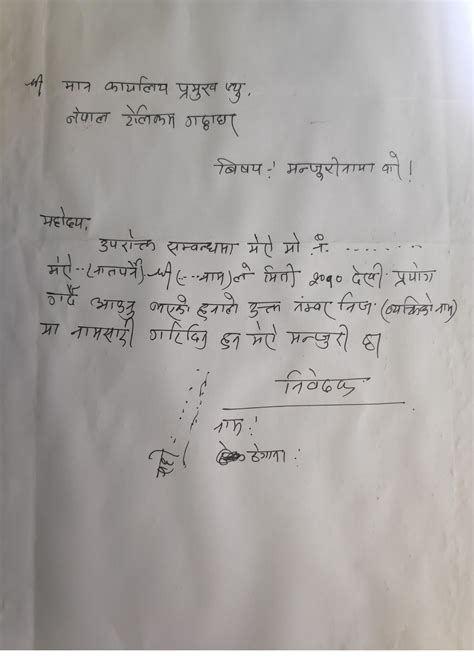 श्री मान कार्यालय प्रमुख ज्यु,
नेपाल टेलिकम गद्दाघर
बिषय :- मन्जुरीनामा बारे।
महोदय,
उपरोक्त सम्बन्धमा मेरो मो. नं. ........
मेरो ..(नातापर्ने) श्री (....नाम) ले मिती २०७० देखी प्रयोग
गर्दै आउनु भएको हुनाले उक्त नम्बर निज (व्यक्तिको नाम)
मा नामसारी गरिदिनु हुन मेरो मन्जुरी छ।
निवेदक
नाम :-
ठेगाना :-